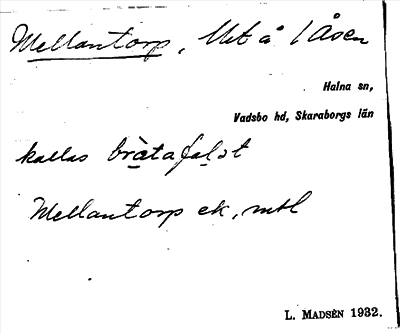 Mellantorp, Ut å Låsen
Halna sn,
Vadsbo hd, Skaraborgs län
kallas bràtafalst
Mellantorp ek, mtl
L. MADSÉN 1932.